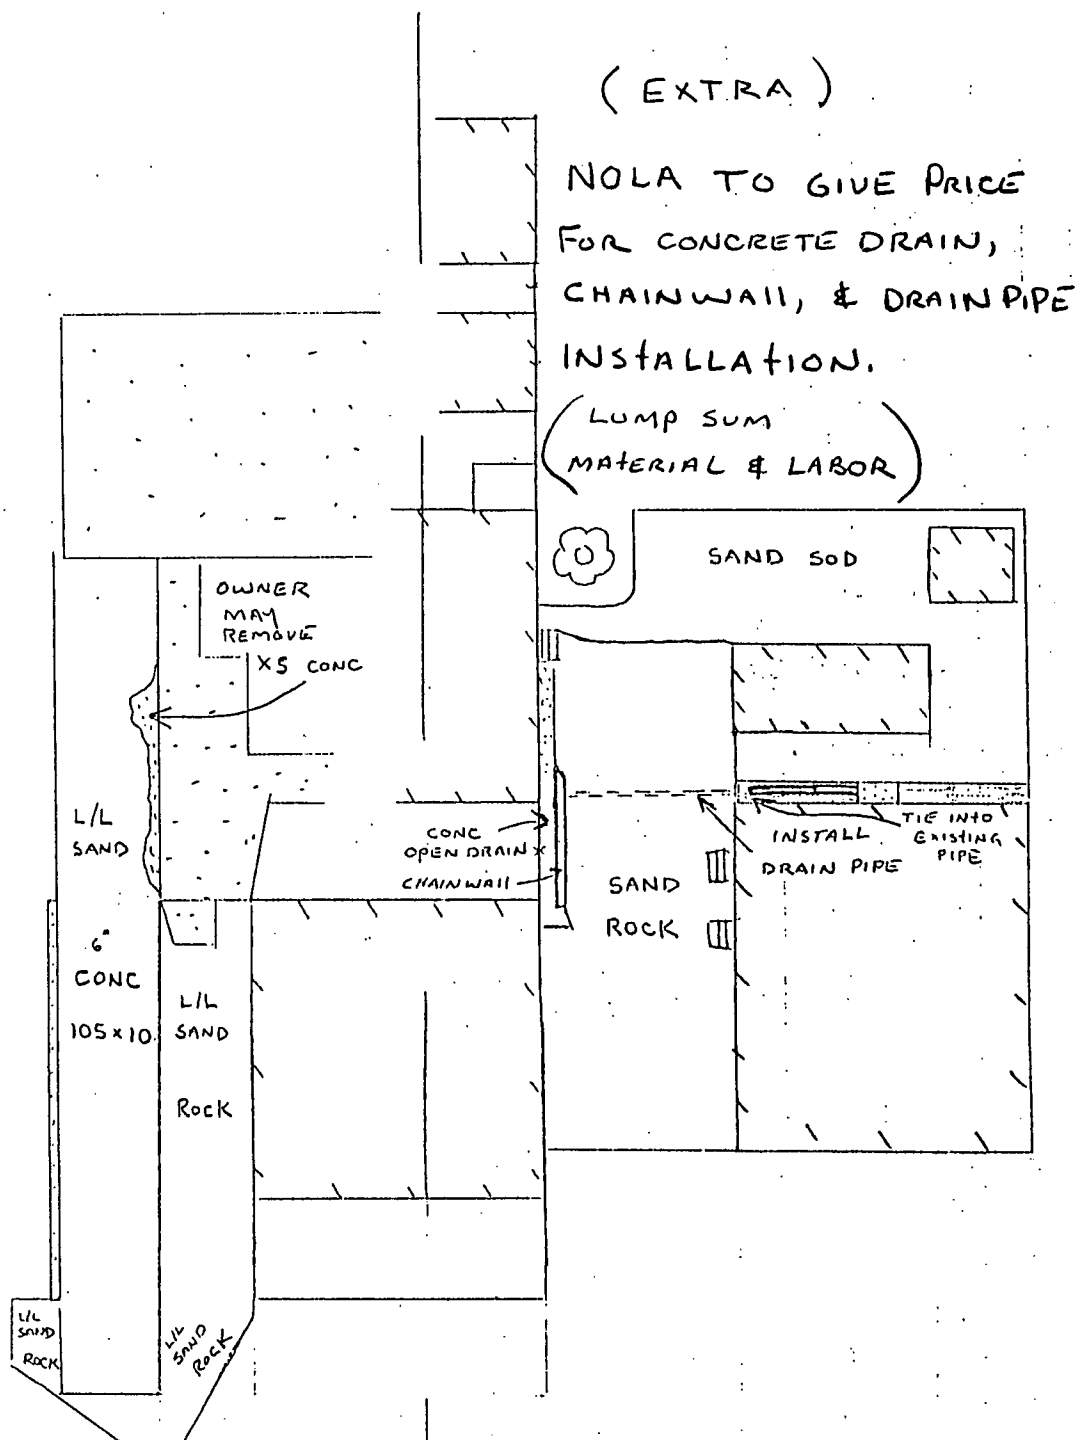 ( EXTRA )
NOLA TO GIVE PRICE
FOR CONCRETE DRAIN,
CHAINWALL, & DRAINPIPE
INSTALLATION.
( LUMP SUM
MATERIAL & LABOR )
SAND SOD
OWNER
MAY
REMOVE
XS CONC
L/L
SAND
CONC
OPEN DRAIN
CHAINWALL
INSTALL
DRAIN PIPE
TIE INTO
EXISTING
PIPE
SAND
ROCK
6"
CONC
105 x 10
L/L
SAND
ROCK
L/L
SAND
ROCK
L/L
SAND
ROCK